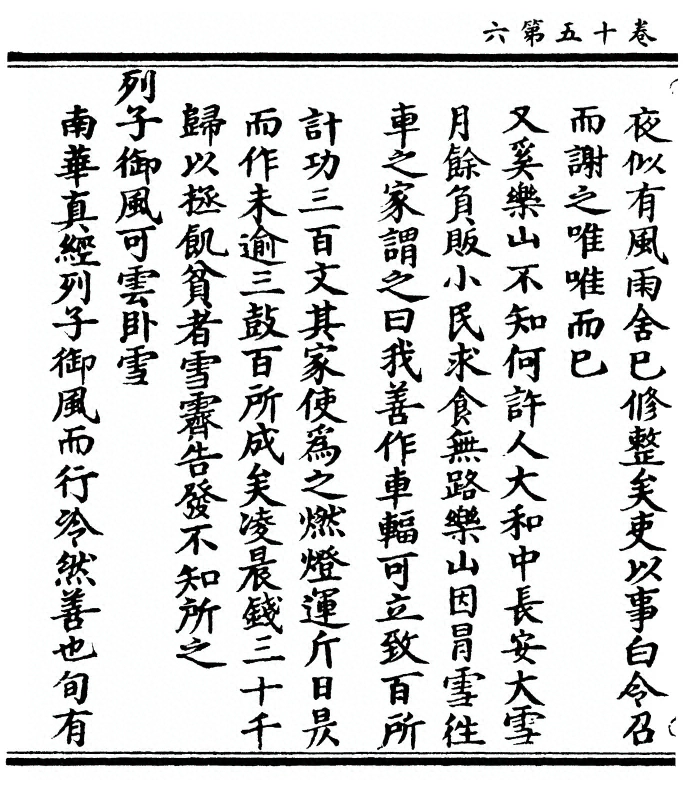 卷十五第六
夜似有風雨舍已修整矣吏以事白令召
而謝之唯唯而已
又奚樂山不知何許人大和中長安大雪
月餘負販小民求食無路樂山因冒雪往
車之家謂之曰我善作車輻可立致百所
計功三百文其家使爲之燃燈運斤日昃
而作未逾三鼓百所成矣凌晨錢三十千
歸以拯飢貧者雪霽告發不知所之
列子御風可雲卧雪
南華真經列子御風而行泠然善也旬有